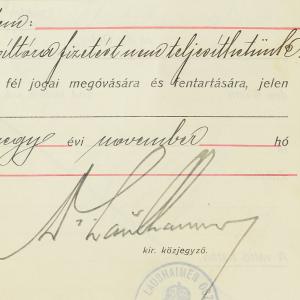 em:
fizetést nem teljesíthetünk.
fél jogai megóvására és fentartására, jelen
egy évi november hó
Dr Laubhaimer
kir. közjegyző.
LAUBHAIMER